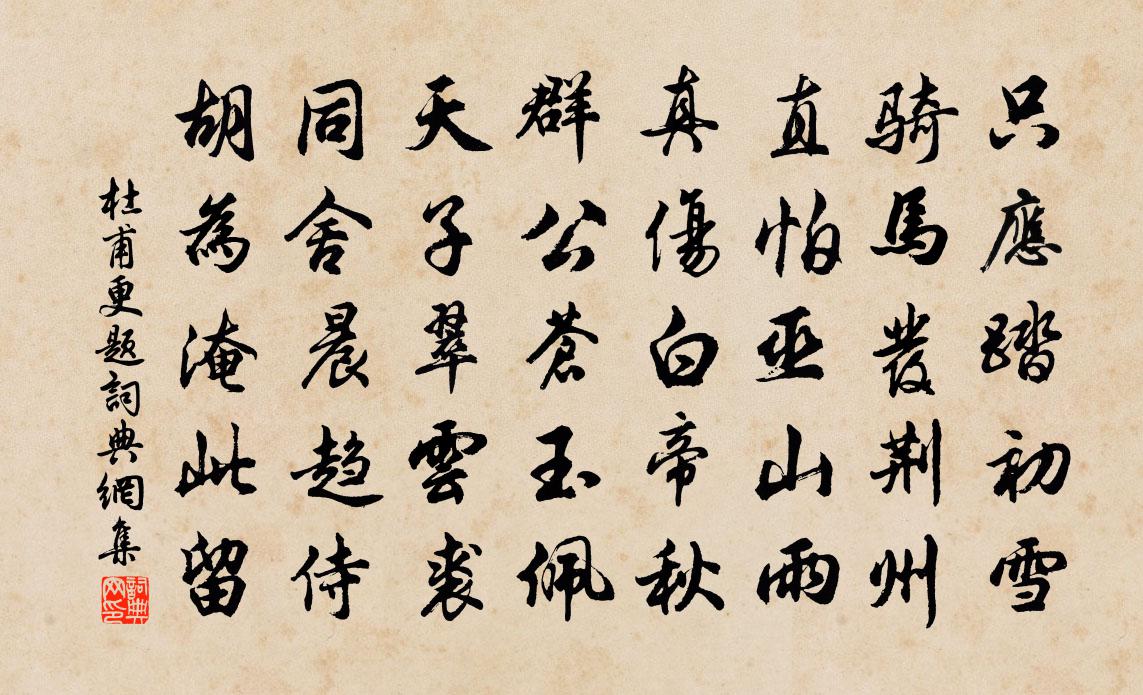 只應踏初雪
騎馬發荆州
直怕巫山雨
真傷白帝秋
群公蒼玉佩
天子翠雲裘
同舍晨趨侍
胡為淹此留
杜甫更題詞典網集
詞典網印